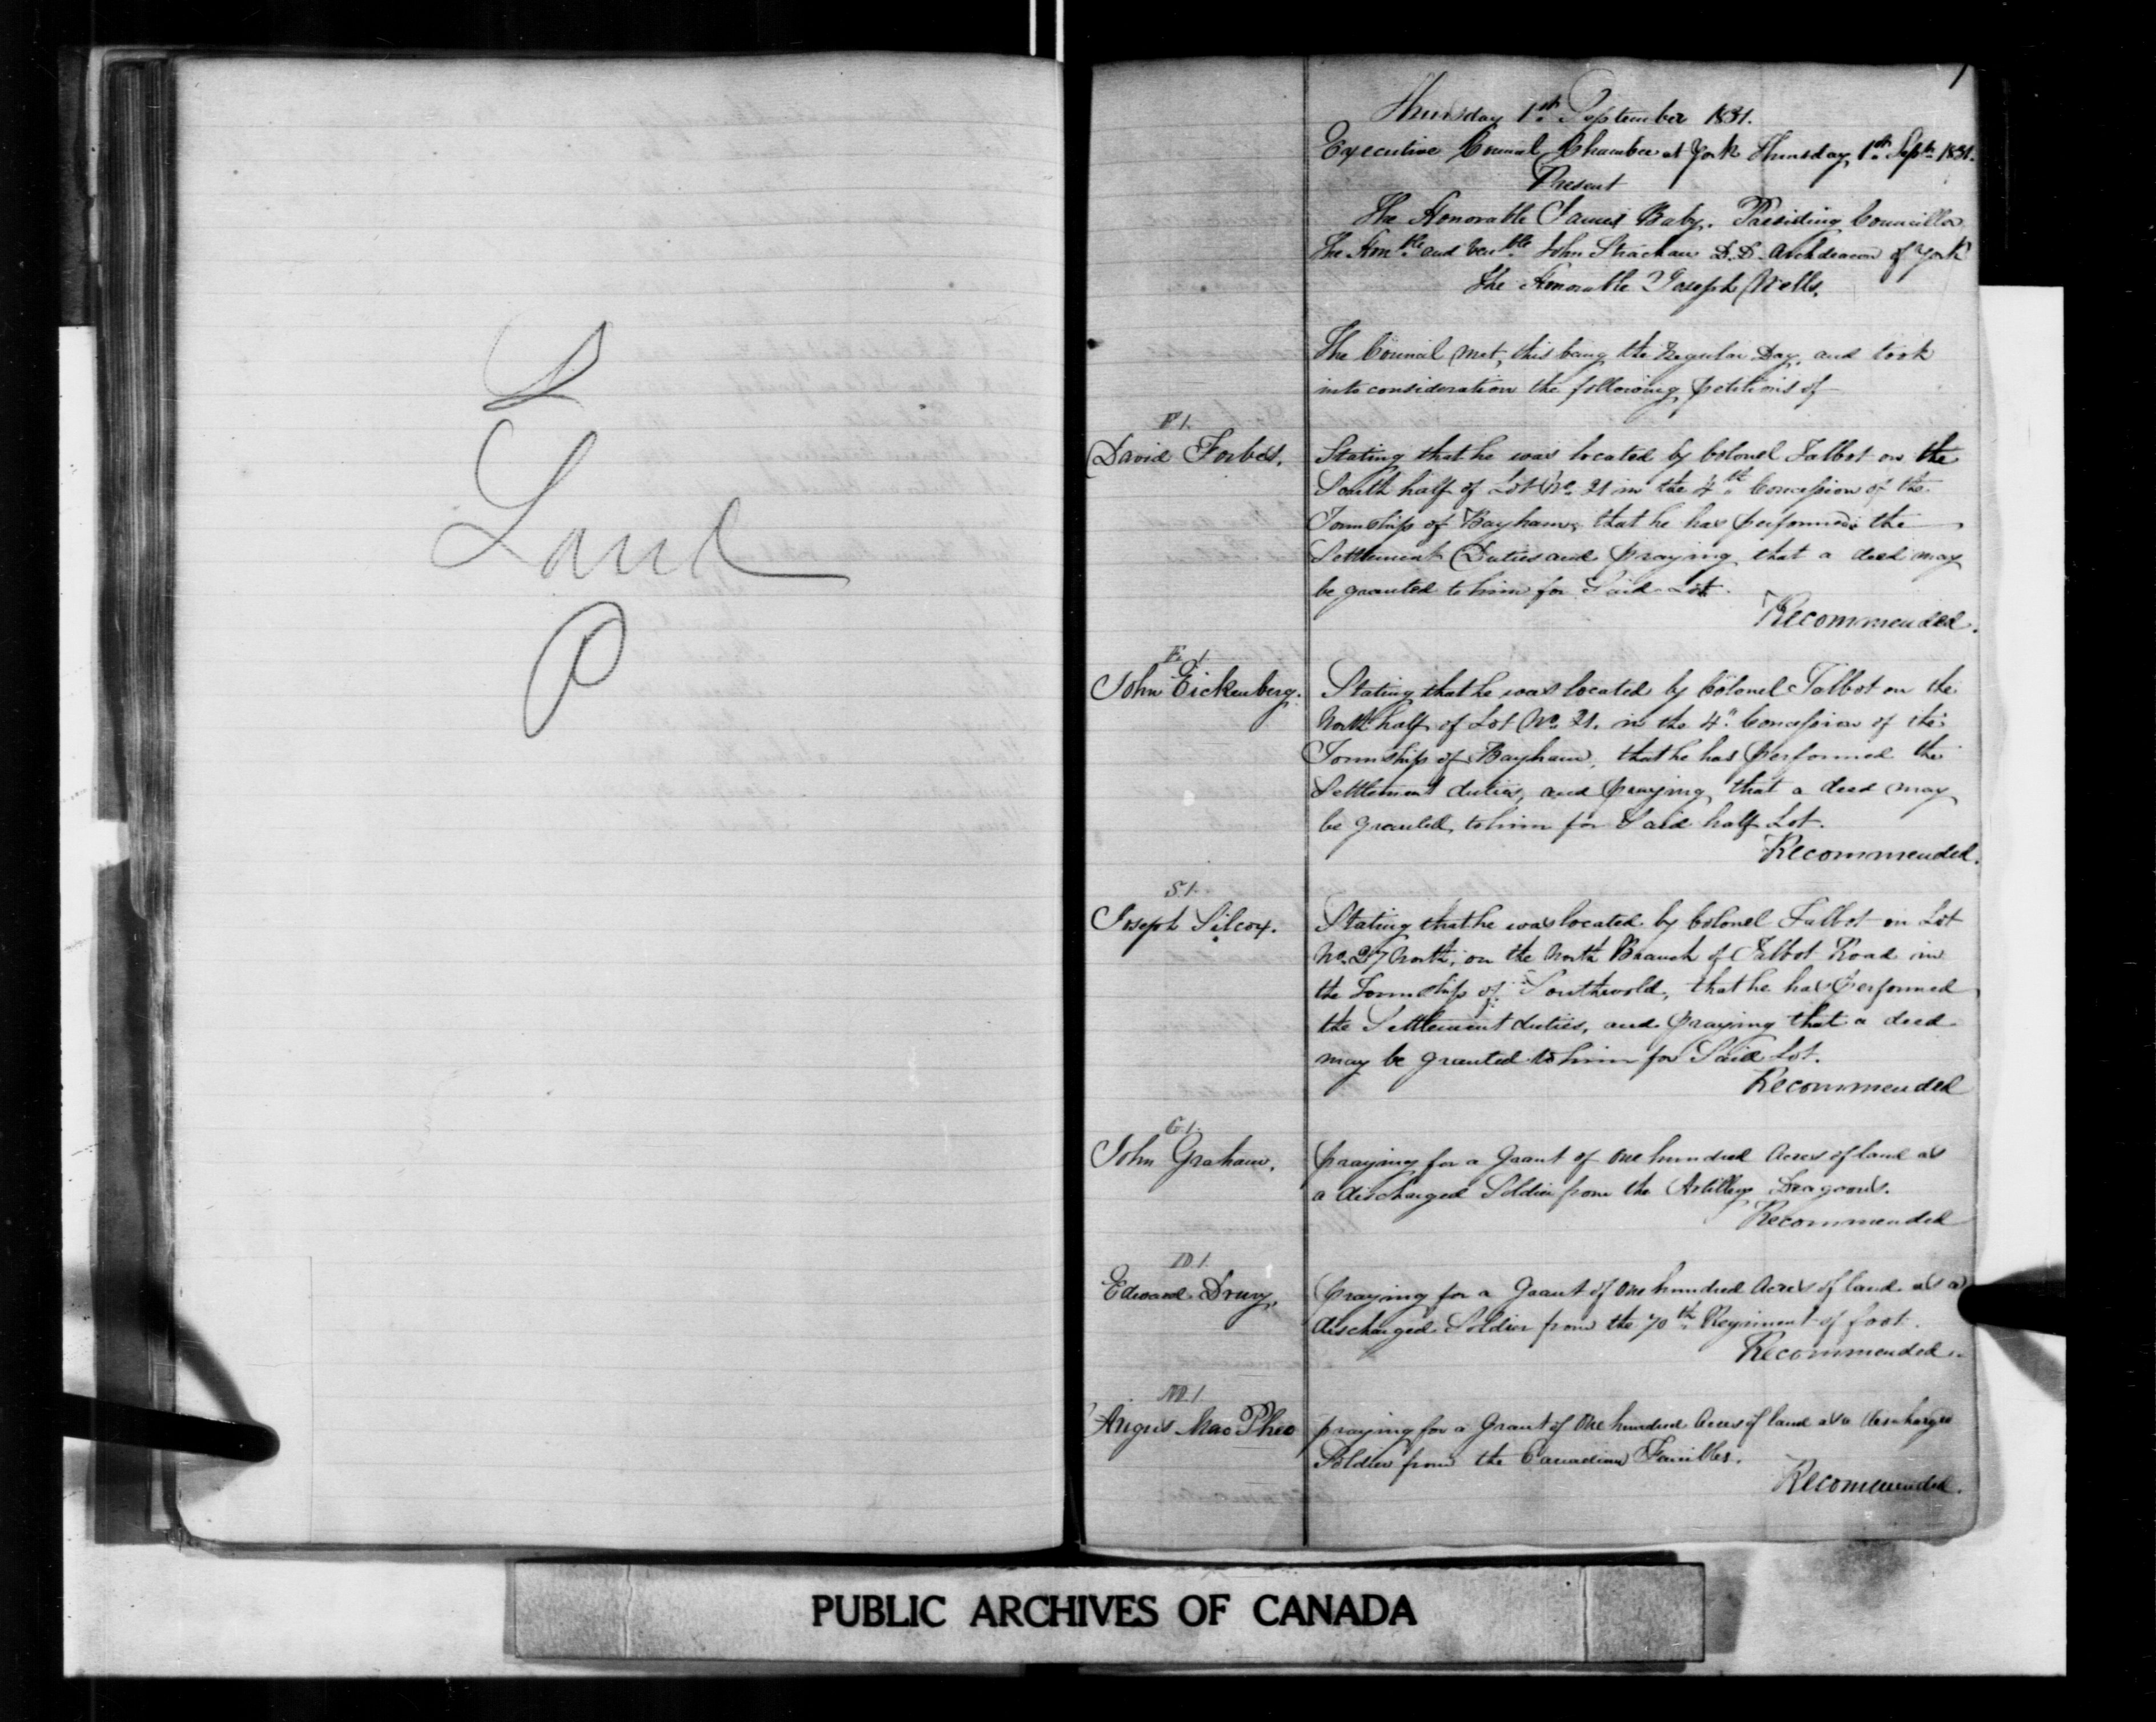 Land
P
1
Thursday 1st September 1831.
Executive Council Chamber at York Thursday, 1st Septr 1831.
Present
The Honorable James Baby, Presiding Councillor
The Honble and Venble John Strachan D.D. Archdeacon of York
The Honorable Joseph Wells.
The Council met, this being the Regular Day, and took
into consideration the following petitions of
F 1.
David Forbes. Stating that he was located by Colonel Talbot on the
South half of Lot No. 21 in the 4th Concession of the
Township of Bayham, that he has performed the
Settlement Duties and praying that a deed may
be granted to him for Said Lot.
Recommended.
E. 1
John Eickenberg. Stating that he was located by Colonel Talbot on the
North half of Lot No. 21. in the 4" Concession of the
Township of Bayham, that he has performed the
Settlement duties, and praying that a deed may
be granted to him for Said half Lot.
Recommended.
S. 1.
Joseph Silcox. Stating that he was located by Colonel Talbot on Lot
No. 27 North, on the North Branch of Talbot Road in
the Township of Southwold, that he has performed
the Settlement duties, and praying that a deed
may be granted to him for Said Lot.
Recommended
G 1.
John Graham. praying for a Grant of one hundred Acres of land as
a discharged Soldier from the Artillery Dragoons.
Recommended
D. 1.
Edward Drury. praying for a Grant of one hundred Acres of land as a
discharged Soldier from the 70th Regiment of foot.
Recommended.
M. 1.
Angus Mac Phee praying for a Grant of One hundred Acres of land as a discharged
Soldier from the Canadian Fencibles.
Recommended.
PUBLIC ARCHIVES OF CANADA